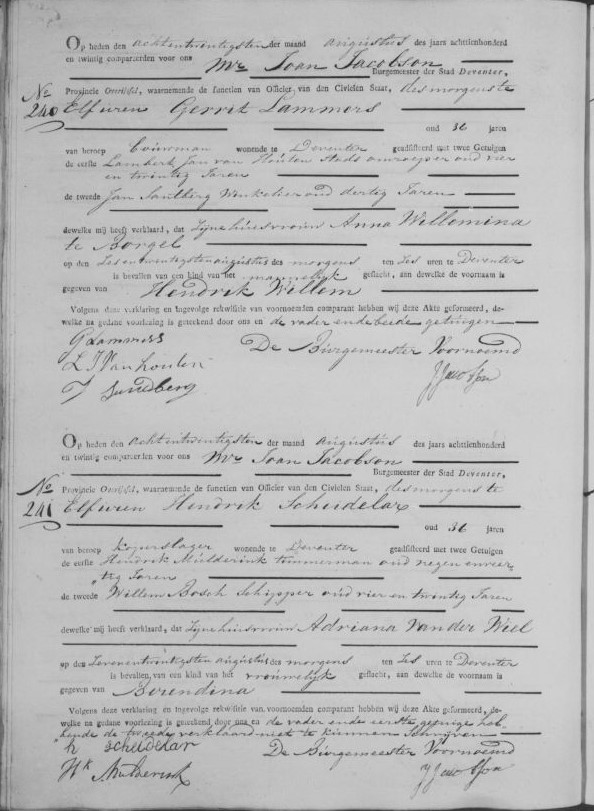 Op heden den achtentwintigsten der maand augustus des jaars achttienhonderd
en twintig compareerden voor ons Mr. Joan Jacobson
Burgemeester der Stad Deventer,
No 240
Provincie Overijssel, waarnemende de functien van Officier van den Civielen Staat, des morgens te
Elf uren Gerrit Lammers
oud 36 jaren
van beroep Bouwman wonende te Deventer geadsisteerd met twee Getuigen
de eerste Lambert Jan van Houten Stads omroeper oud vier
en twintig Jaren
de tweede Jan Sundberg Winkelier oud dertig Jaren
dewelke mij heeft verklaard, dat Zijne huisvrouw Anna Willemina
te Borgel
op den Zesentwintigsten augustus des morgens ten Zes uren te Deventer
is bevallen van een kind van het mannelijk geslacht, aan dewelke de voornaam is
gegeven van Hendrik Willem
Volgens deze verklaring en togevolge rekwisitie van voornoemden comparant hebben wij deze Akte geformeerd, de-
welke na gedane voorlezing is geteekend door ons en de vader en de beide getuigen
G Lammers
De Burgemeester Voornoemd
L J Van houten
J Jacobson
J Sundberg
Op heden den achtentwintigsten der maand augustus des jaars achttienhonderd
en twintig compareerden voor ons Mr. Joan Jacobson
Burgemeester der Stad Deventer,
No 241
Provincie Overijssel, waarnemende de functien van Officier van den Civielen Staat, des morgens te
Elf uren Hendrik Scheidelar
oud 36 jaren
van beroep Koperslager wonende te Deventer geadsisteerd met twee Getuigen
de eerste Hendrik Mulderink timmerman oud negen en veer
tig Jaren
de tweede Willem Bosch Schipper oud vier en twintig Jaren
dewelke mij heeft verklaard, dat Zijne huisvrouw Adriana Van der Wiel
op den Zevenentwintigsten augustus des morgens ten Zes uren te Deventer
is bevallen van een kind van het vrouwelijk geslacht, aan dewelke de voornaam is
gegeven van Berendina
Volgens deze verklaring en togevolge rekwisitie van voornoemden comparant hebben wij deze Akte geformeerd, de-
welke na gedane voorlezing is geteekend door ons en de vader en de eerste getuige heb
bende de tweede verklaard niet te kunnen Schrijven
h scheidelar
De Burgemeester Voornoemd
Hk Mulderink
J Jacobson